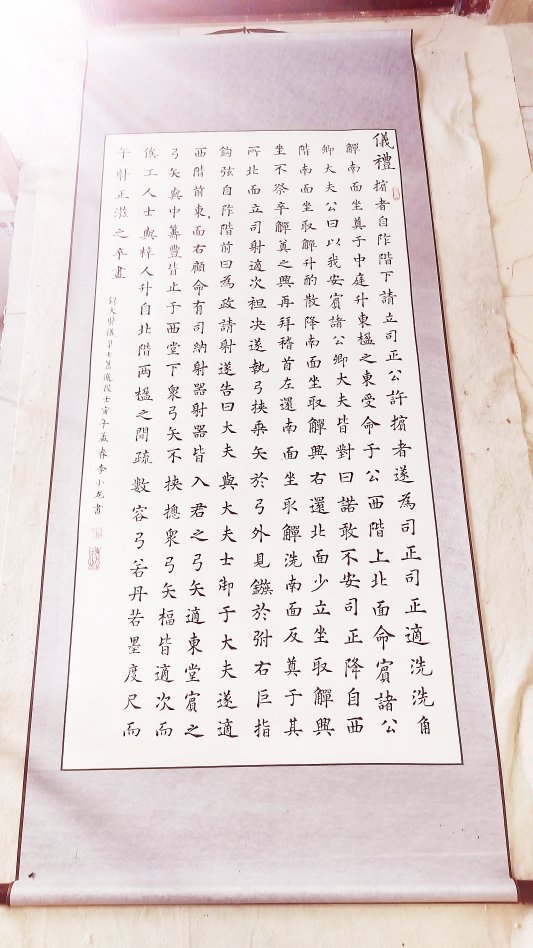 儀禮 擯者自阼階下請立司正公許擯者遂為司正司正適洗洗角
觶南面坐奠于中庭升東楹之東受命于公西階上北面命賓諸公
卿大夫公曰以我安賓諸公卿大夫皆對曰諾敢不安司正降自西
階南面坐取觶升酌散降南面坐取觶興右還北面少立坐取觶興
坐不祭卒觶奠之興再拜稽首左還南面坐取觶洗南面反奠于其
所北面立司射適次袒决遂執弓挾乘矢於弓外見鏃於弣右巨指
鉤弦自阼階前曰為政請射遂告曰大夫與大夫士御于大夫遂適
西階前東面右顧命有司納射器射器皆入君之弓矢適東堂賓之
弓矢與中籌豐皆止于西堂下衆弓矢不挾揔衆弓矢楅皆適次而
俟工人士與梓人升自北階两楹之間疏數容弓若丹若墨度尺而
午射正涖之卒畫
錄大射儀第七篇選段壬寅年孟春李小龙書